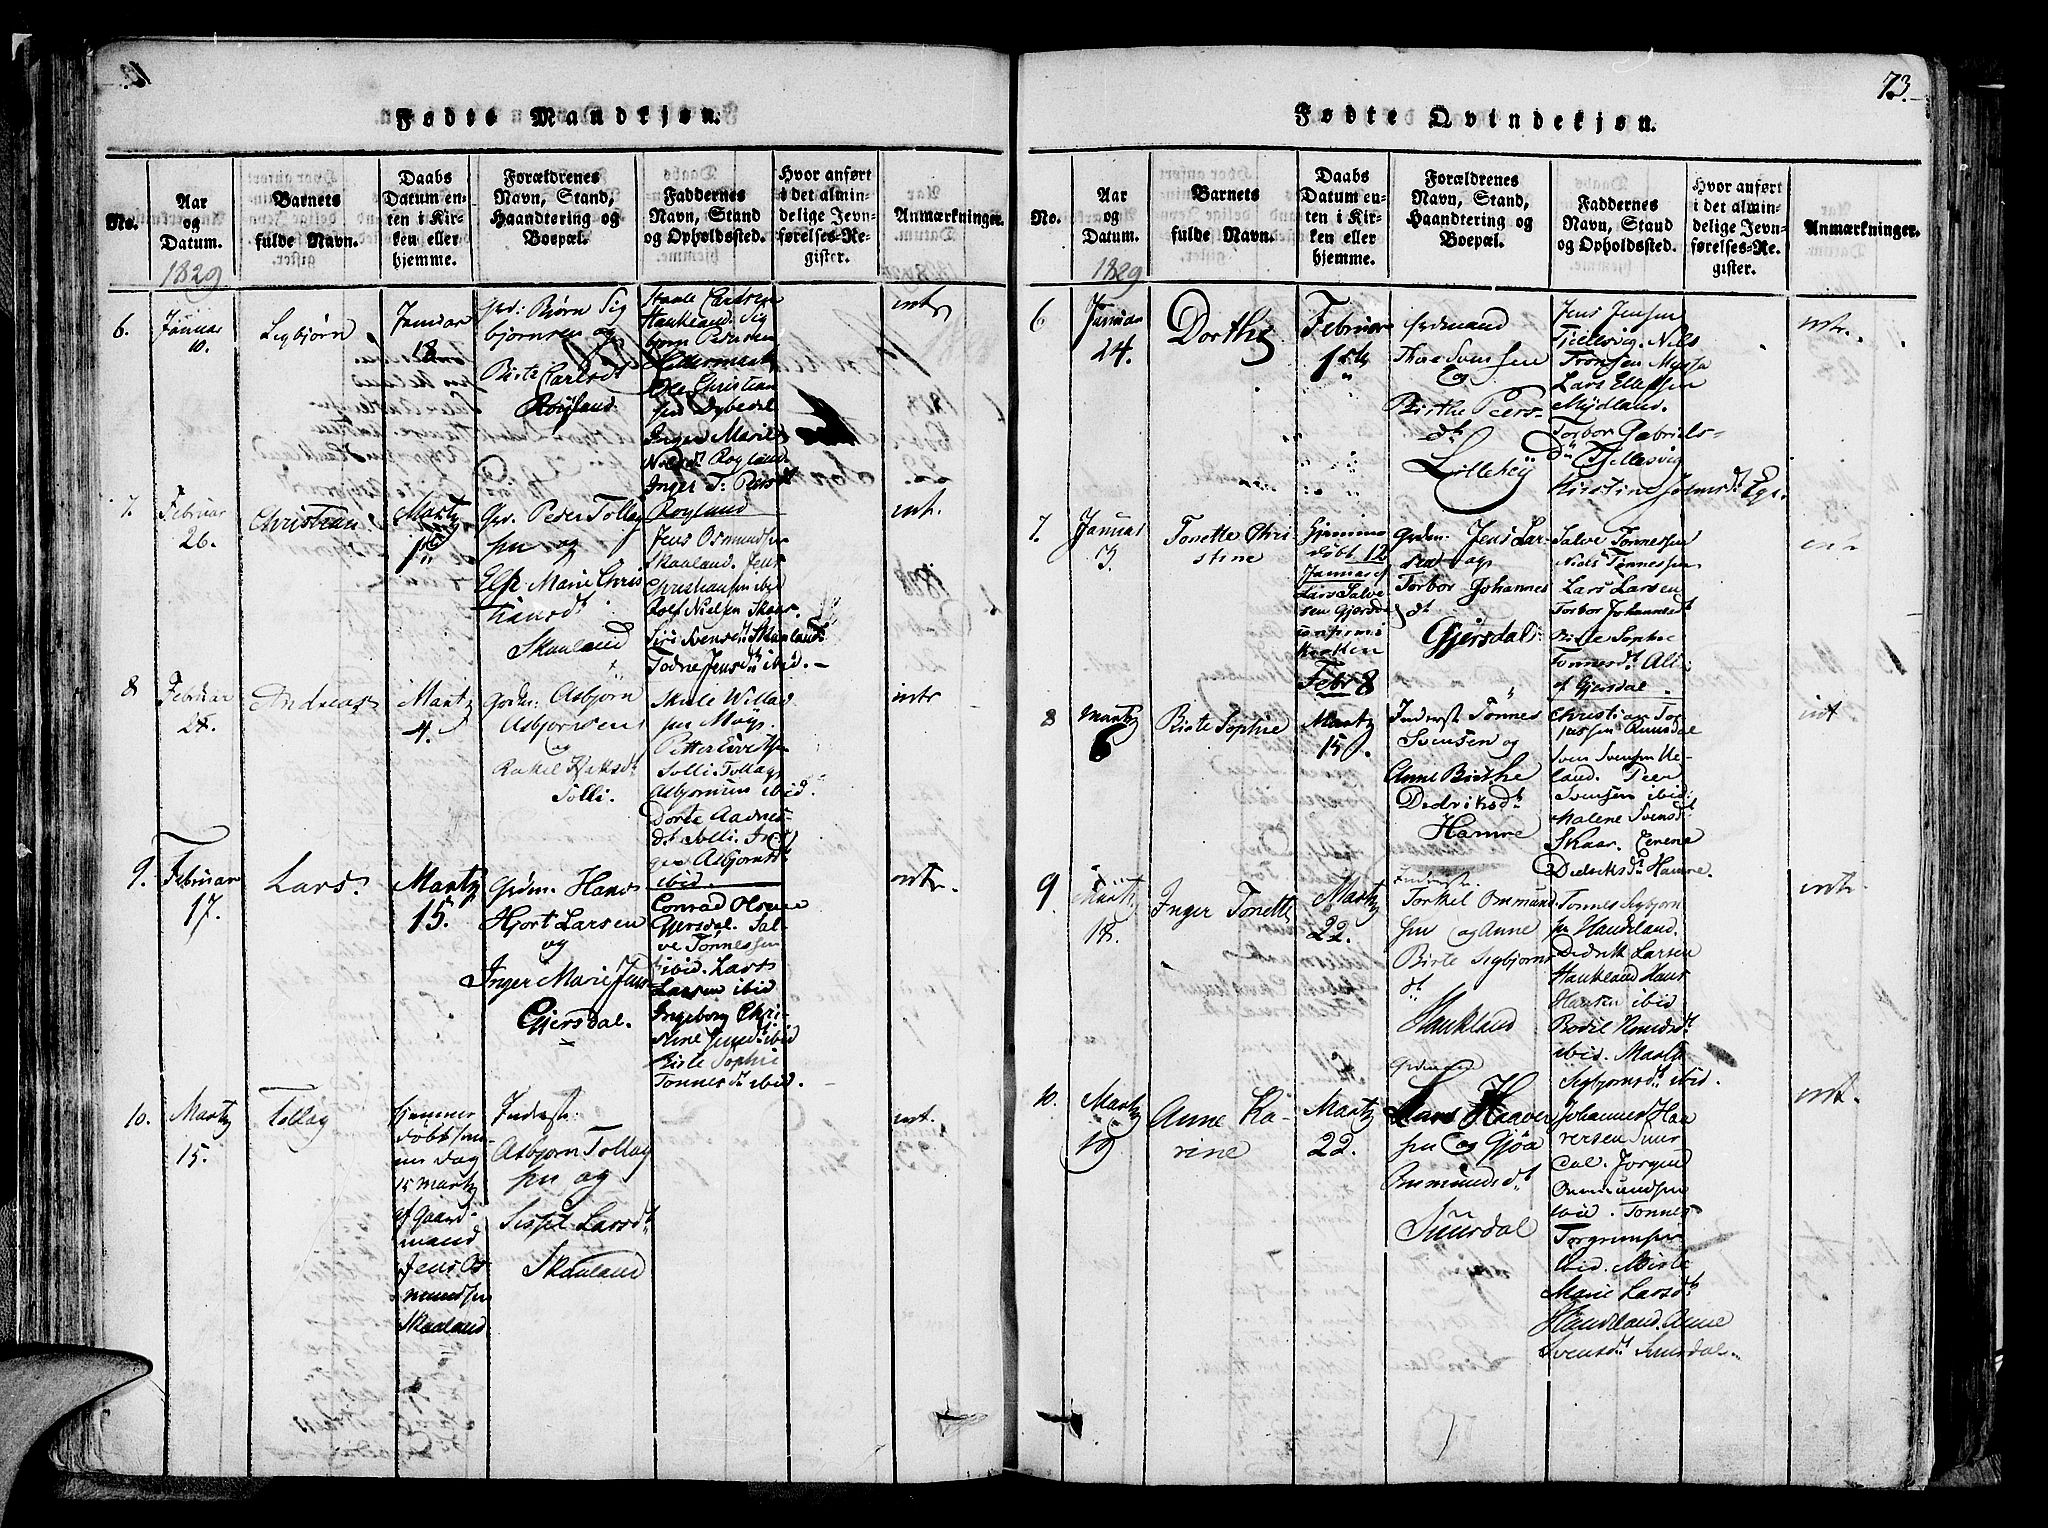 Fødte Mandkjøn.
No.
Aar
og
Datum.
1829
Barnets
fulde Navn.
Daabs
Datum en-
ten i Kir-
ken eller
hjemme.
Forældrenes
Navn, Stand,
Haandtering og
Boepæl.
Faddernes
Navn, Stand
og Opholdssted.
Hvor anført
i det almin-
delige Jevn-
førelses-Re-
gister.
Anmærkninger.
6.
Januar
10.
Sigbjørn
Januar
18
Grd: Bjørn Sig
bjørnsen og
Birte Carlsdt
Røyland
Staale Carlsen
Haukland. Sig
bjørn Pedersen
Ole Christian
sen Dybedal
Inger Marie
Nilsdt Røyland.
Inger T. Peersdt
Røyland
intr
7.
Februar
26.
Christian
Martz
1ste
Grd. Peder Tollag
sen og
Else Marie Chris
tiansdt
Skaaland
Jens Osmundsen
Skaaland. Jens
Christiansen ibid
Rolf Nielsen Skaar
Siri Svensdt Skaaland
Todne Jensdt ibid.
int.
8
Februar
Andreas
Martz
4.
Grdm: Asbjørn
Asbjørnsen
og
Rakel
Tolli.
Skule Willad
sen Møys.
Petter
Tolli. Tollag
Asbjørnsen ibid.
Dorte Aadnes-
dt Tolli. In-
ger Asbjørnsdt
ibid.
intr
9.
Februar
17.
Lars.
Martz
15.
Grdm. Hans
Hjort Larsen
og
Inger Marie Jens
Gjersdal.
Conrad Olsen
Gjersdal. Sal-
ve Tønnessen
ibid. Lars
Larsen ibid
Ingeborg Chri-
stine Jensdt ibid
Birte Sophie
Tønnesdt ibid.
intr.
10.
Martz
15.
Tollag
hjemme
døbt sam-
me dag
15 Martz
af Gaard-
mand
Jens Os
mundsen
Skaaland
Inderst:
Asbjørn Tollag
sen og
Sissel Larsdt
Skaaland
int.
73.
Fødte Qvindekjøn.
No.
Aar
og
Datum.
1829
Barnets
fulde Navn.
Daabs
Datum en-
ten i Kir-
ken eller
hjemme.
Forældrenes
Navn, Stand,
Haandtering og
Boepæl.
Faddernes
Navn, Stand
og Opholdssted.
Hvor anført
i det almin-
delige Jevn-
førelses-Re-
gister.
Anmærkninger.
6
Januar
24.
Dorthe
Februar
1ste
Grdmand
Thore Svensen
og
Birthe Peers-
dt
Lillehÿ
Jens Jensen
Tjellesvig. Nils
Tronsen Myssa
Lars Ellefsen
Mÿdland.
Torbor Gabriels-
dt Tjellesvig
Kirstine Johnsdt Ege.
intr.
7.
Januar
3.
Tonette Chri
stine
Hjemme
døbt 12
Januar af
Lars Salve
sen Gjersdal
confirm. i
Kirken
Febr 8
Grdm. Jens Lar-
sen og
Torbor Johannes
dt
Gjersdal.
Salve Tønnessen
Niels Tønnessen
Lars Larsen
Torbor Johannesdt
Birte Sophie
Tønnesdt Alle
af Gjersdal.
8
Martz
6
Birte Sophie
Martz
15.
Inderst. Tönnes
Svensen og
Anne Birthe
Didriksdt
Hamre
Christian Tor
jussen
Sven Svensen He-
land. Peer
Svensen ibid:
Malene Svensdt
Skaar. Serene
Didriksdt Hamre.
int
9
Martz
18.
Inger Tonette
Martz
22.
Inderst:
Torkel Ommund
sen og Anne
Birte Sigbjørns
dt
Haukland
Tønnes Sigbjørn
sen Haukland.
Didrik Larsen
Haukland Hans
Hansen ibid
Bodil
ibid. Marte
Sigbjørnsdt ibid.
intr.
10.
Martz
19
Anne Ka-
rine
Martz
22.
Grdmand
Lars Haaver
sen og Gjøa
Ommundsdt
Suursdal
Johannes Haa
versen Suur
dal. Jørgen
Ommundsen
ibid. Tønnes
Torgrimsen
ibid. Birte
Marie Larsdt
Haukland. Anne
Svensdt Suursdal.
int.